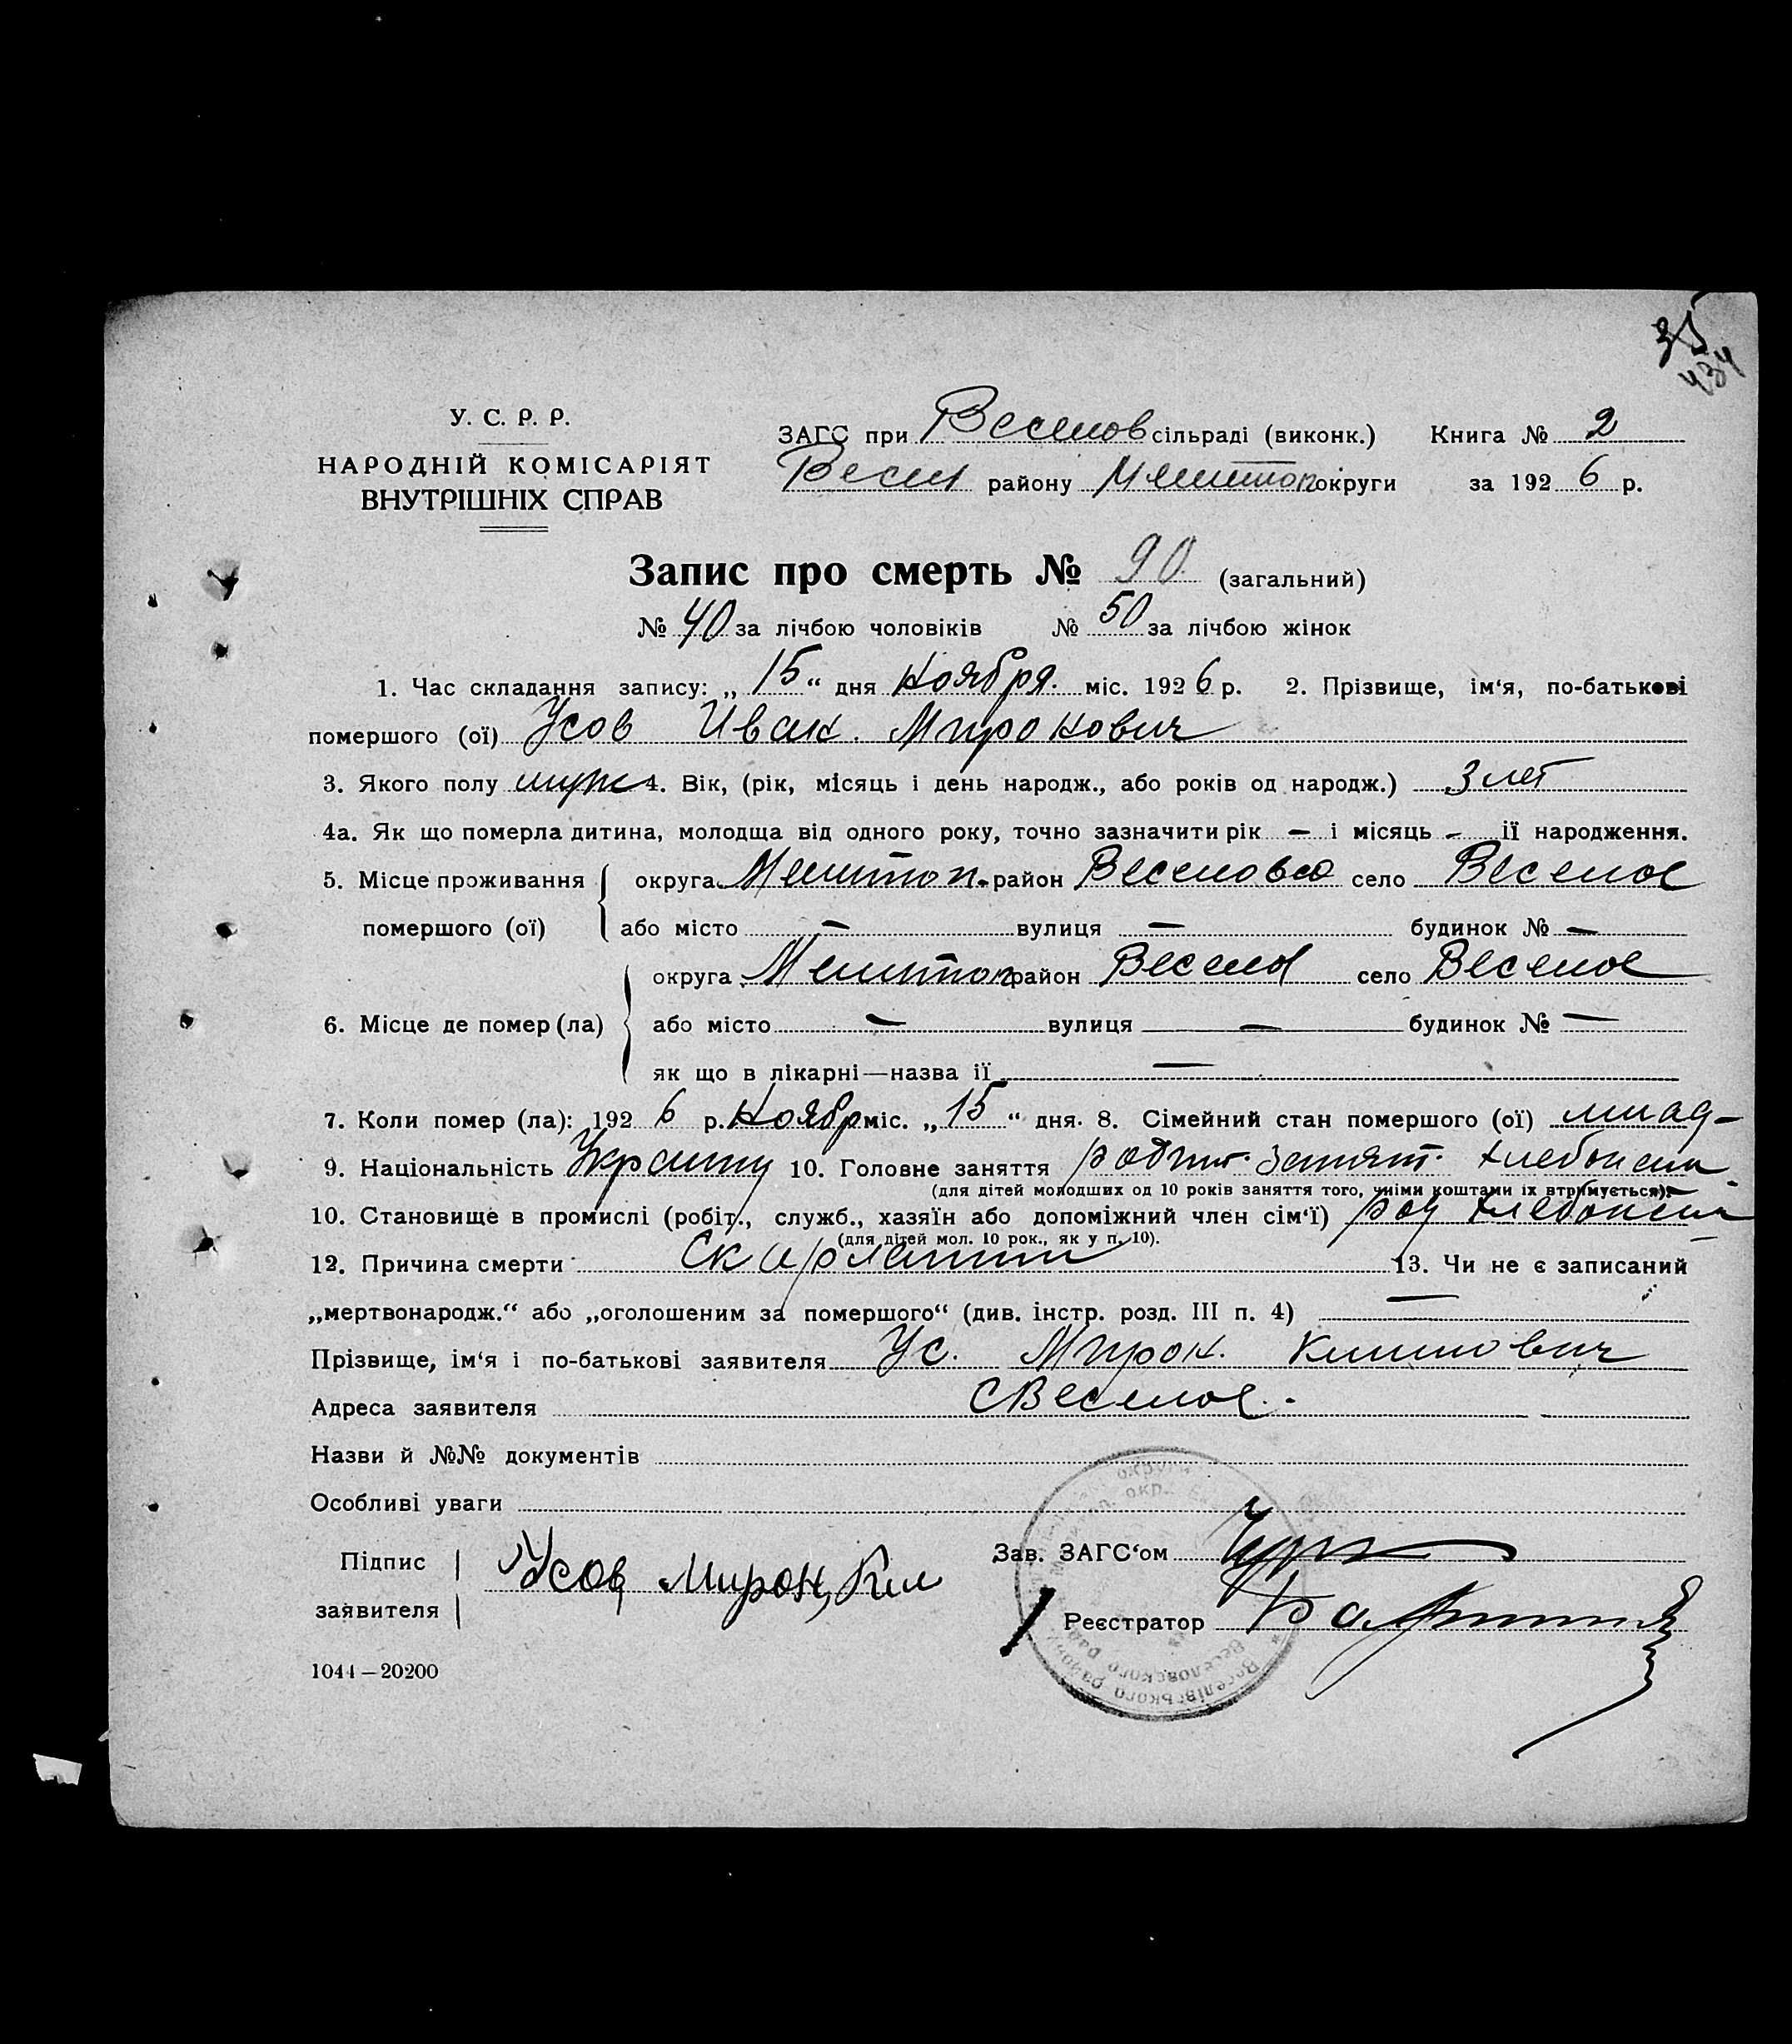 35
434
У. С. Р. Р.
НАРОДНІЙ КОМІСАРІЯТ
ВНУТРІШНІХ СПРАВ
ЗАГС при Веселов сільраді (виконк.) Книга № 2
Весел району Мелитоп округи за 1926 р.
Запис про смерть № 90 (загальний)
№ 40 за лічбою чоловіків № 50 за лічбою жінок
1. Час складання запису: „15“ дня Ноября. міс. 1926 р. 2. Прізвище, ім‘я, по-батькові
помершого (ої) Усов Иван. Миронович
3. Якого полу муж 4. Вік, (рік, місяць і день народж., або років од народж.) 3 лет
4а. Як що померла дитина, молодща від одного року, точно зазначити рік — і місяць - ії народження.
5. Місце проживання помершого (ої) округа Мелитоп. район Веселовсо село Веселое
або місто — вулиця — будинок № —
6. Місце де помер (ла) округа Мелитоп район Весело село Веселое
або місто — вулиця — будинок № —
як що в лікарні—назва ії —
7. Коли помер (ла): 1926 р. Ноябр міс. „15“ дня. 8. Сімейний стан помершого (ої) млад-
9. Національність Украинц 10. Головне заняття родит. занят. хлебопаш
(для дітей молодших од 10 років заняття того, чиїми коштами їх втримується).
10. Становище в промислі (робіт., служб., хазяїн або допоміжний член сім‘ї) род хлебопаш
(для дітей мол. 10 рок., як у п. 10).
12. Причина смерти Скарлатин 13. Чи не є записаний
„мертвонародж.“ або „оголошеним за помершого“ (див. інстр. розд. III п. 4) —
Прізвище, ім‘я і по-батькові заявителя Ус. Мирон. Климович
Адреса заявителя С Веселое.
Назви й №№ документів
Особливі уваги
Підпис заявителя Усов Мирон, Кли
Зав. ЗАГС‘ом
Реєстратор
1044—20200